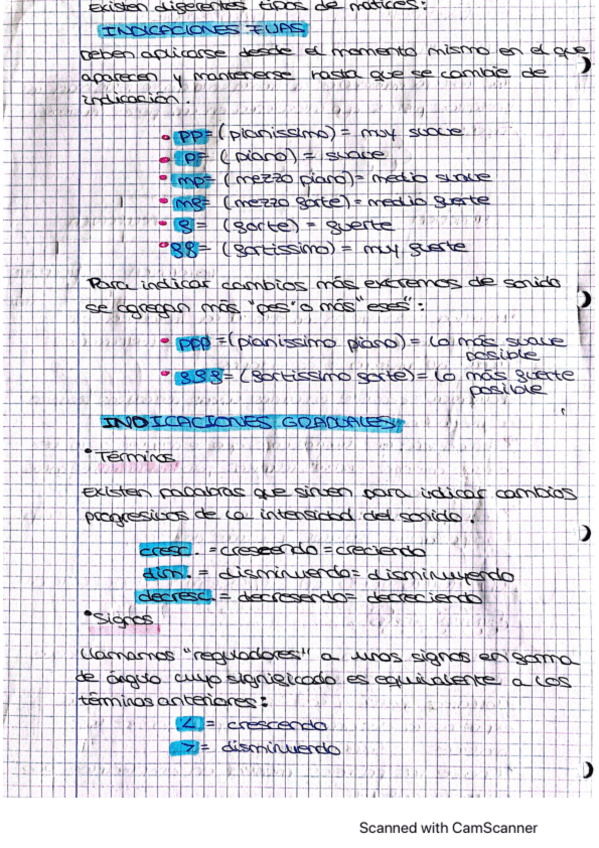 Existen diferentes tipos de matices:
INDICACIONES FIJAS
Deben aplicarse desde el momento mismo en el que
aparecen y mantenerse hasta que se cambie de
indicación.
• pp = (pianissimo) = muy suave
• p = (piano) = suave
• mp = (mezzo piano) = medio suave
• mf = (mezzo forte) = medio fuerte
• f = (forte) = fuerte
• ff = (fortissimo) = muy fuerte
Para indicar cambios más extremos de sonido
se agregan más "pes" o más "efes":
• ppp = (pianissimo piano) = lo más suave
posible
• fff = (fortissimo forte) = lo más fuerte
posible
INDICACIONES GRADUALES:
• Términos
Existen palabras que sirven para indicar cambios
progresivos de la intensidad del sonido.
cresc. = crescendo = creciendo
dim. = disminuendo = disminuyendo
decresc. = decresendo = decreciendo
• Signos
Llamamos "reguladores" a unos signos en forma
de ángulo cuyo significado es equivalente a los
términos anteriores:
< = crescendo
> = disminuendo
Scanned with CamScanner